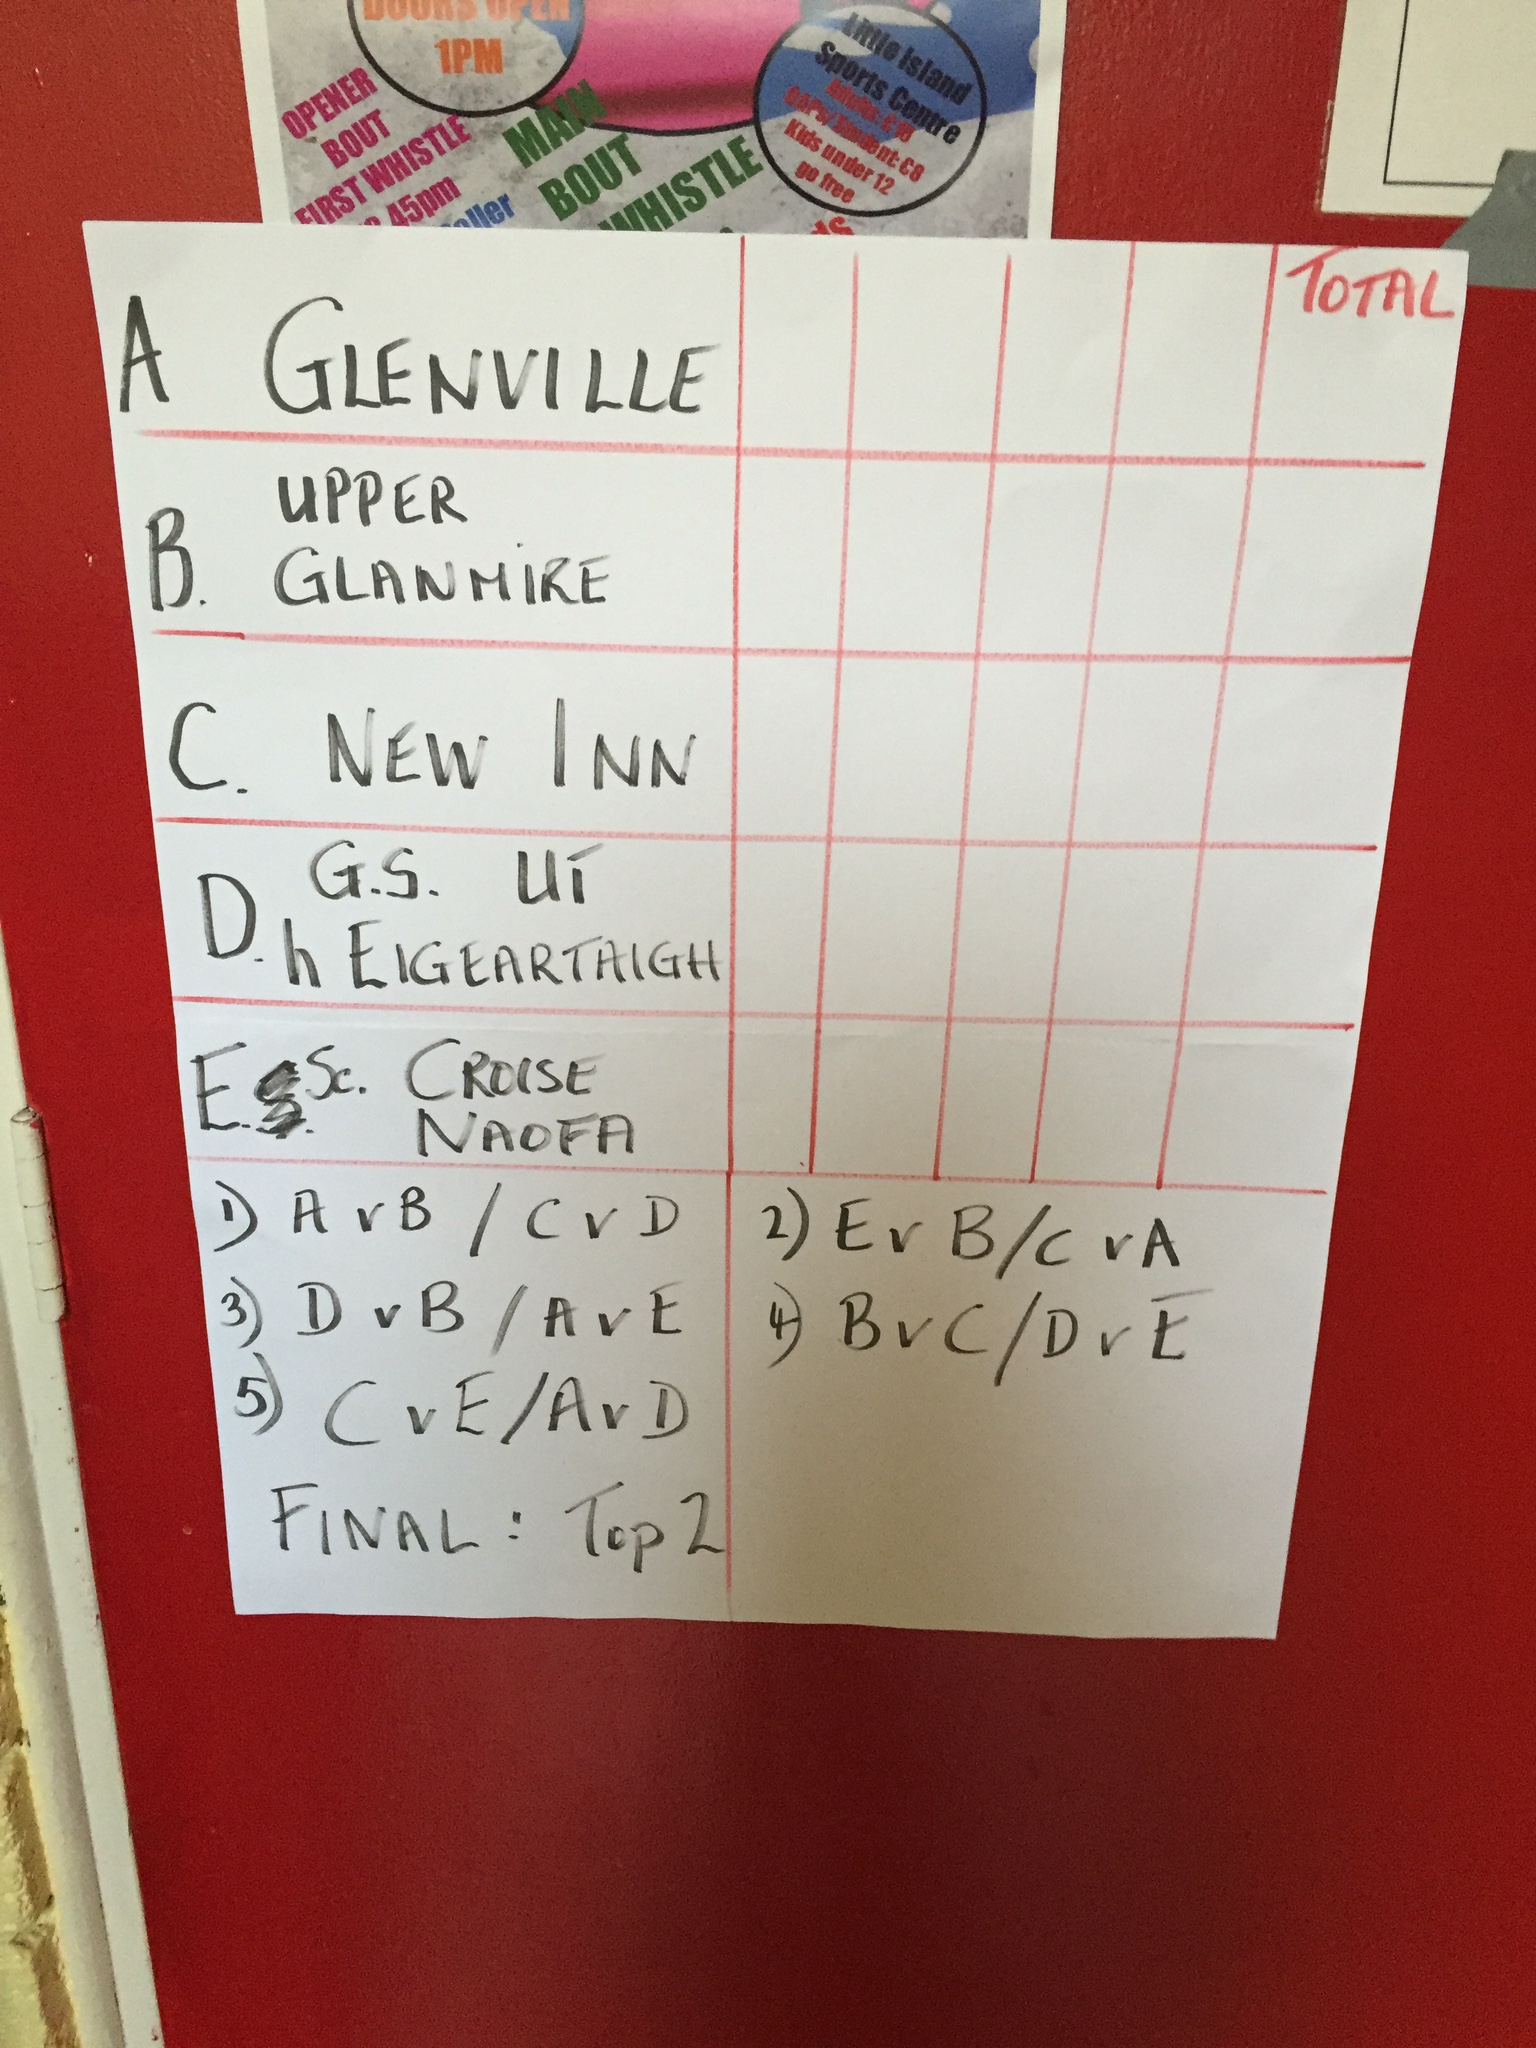 DOORS OPEN
1PM
OPENER
BOUT
FIRST WHISTLE
45pm
MAIN
BOUT
WHISTLE
Little Island
Sports Centre
Kids under 12
go free
TOTAL
A GLENVILLE
UPPER
B. GLANMIRE
C. NEW INN
G.S. UÍ
D. hEIGEARTAIGH
E. Sc. CROISE
NAOFA
1) A v B / C v D
2) E v B / C v A
3) D v B / A v E
4) B v C / D v E
5) C v E / A v D
FINAL : Top 2